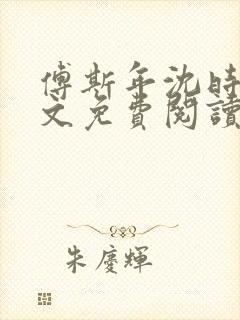 傅斯年沈時
文免費閱讀
朱慶輝